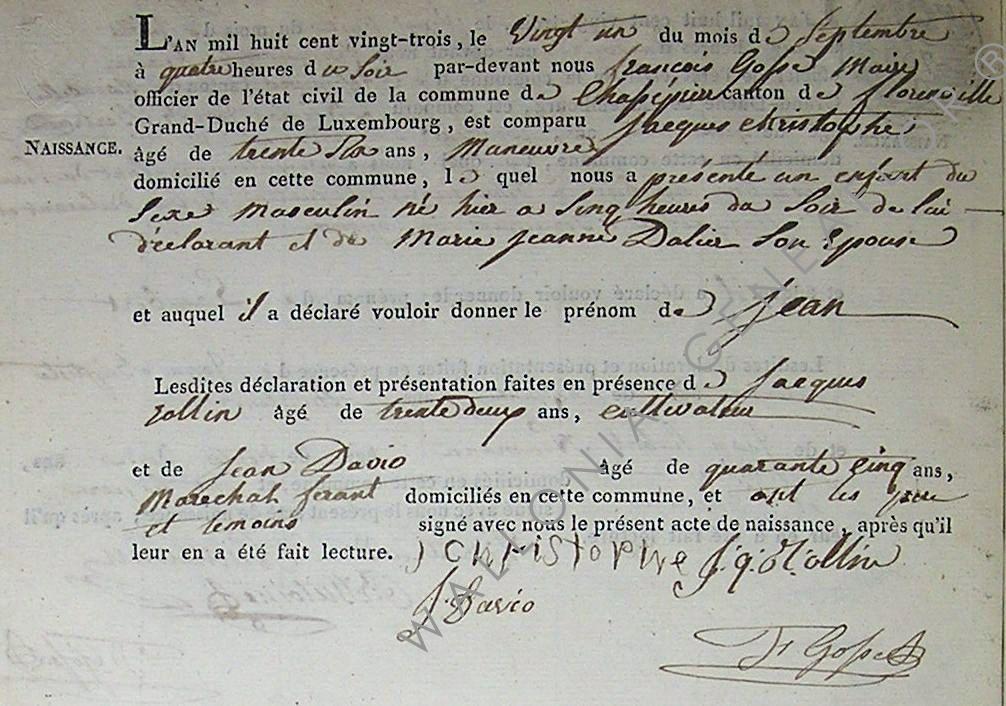 L'AN mil huit cent vingt-trois, le Vingt un du mois de Septembre
à quatre heures du Soir par-devant nous françois Gosse Maire
officier de l'état civil de la commune de Chassepierre canton de florenville
Grand-Duché de Luxembourg, est comparu Jacques christophe
NAISSANCE. âgé de trente Six ans, Maneuvre
domicilié en cette commune, le quel nous a présenté un enfant du
Sexe Masculin né hier a Sinq heures du Soir de lui
déclarant et de Marie jeanne Dalier Son Epouse
et auquel il a déclaré vouloir donner le prénom de jean
Lesdites déclaration et présentation faites en présence de Jacques
âgé de trente deux ans, cultivateur
et de Jean Davio âgé de quarante Cinq ans,
Marechal ferant domiciliés en cette commune, et ont les
et temoins signé avec nous le présent acte de naissance, après qu'il
leur en a été fait lecture. J CHRISTOPHE
J. Davio
F Gosse
WALLONIA GENEALOR ®